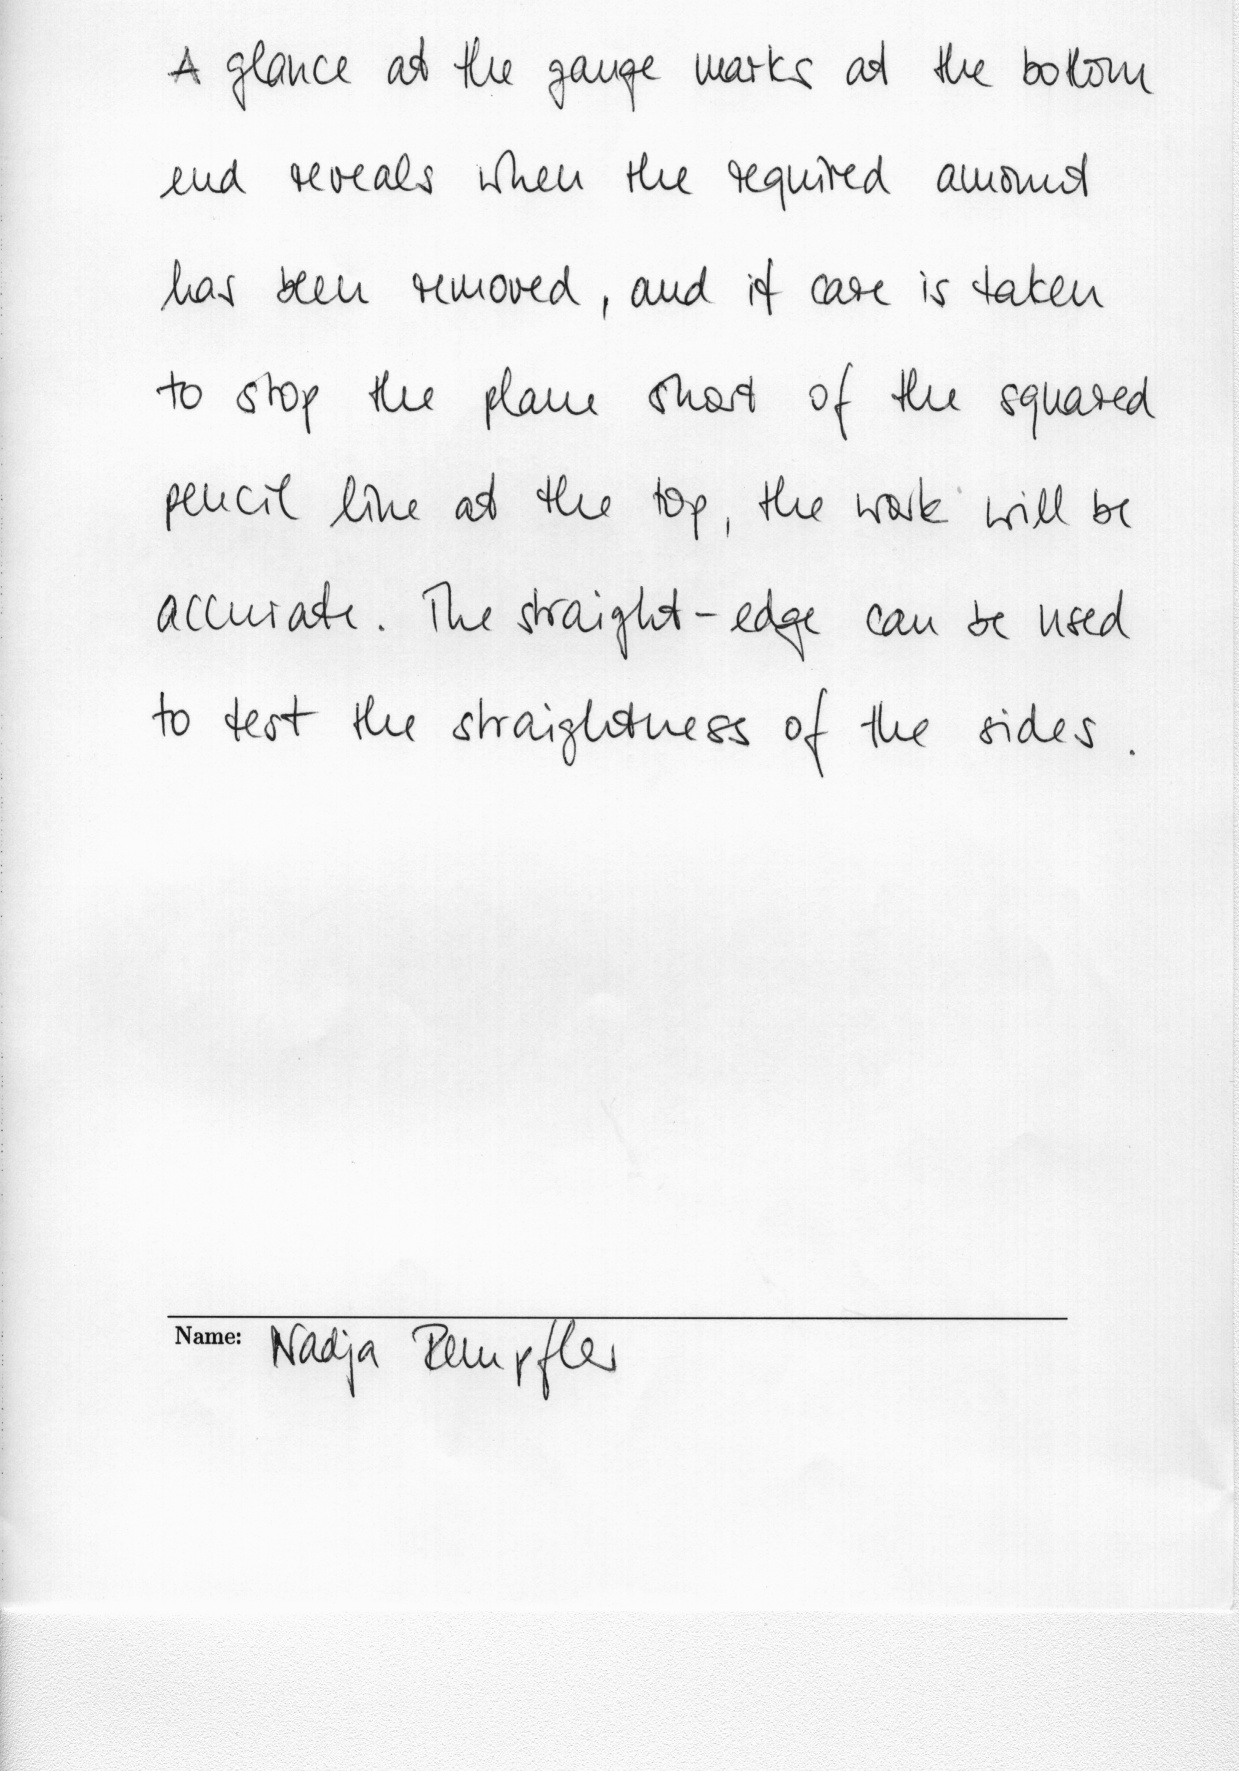 A glance at the gauge marks at the bottom
end reveals when the required amount
has been removed, and if care is taken
to stop the plane short of the squared
pencil line at the top, the work will be
accurate. The straight-edge can be used
to test the straightness of the sides.
Name: Nadja Rempfler